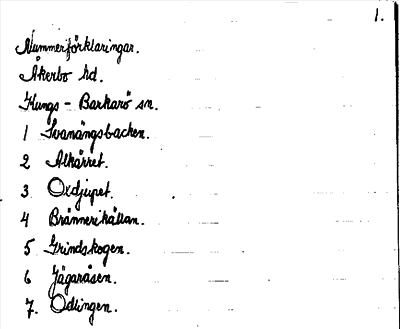 1.
Nummerförklaringar.
Åkerbo hd.
Kungs - Barkarö sn.
1 Svanängsbacken.
2 Alkärret.
3 Oxdjupet.
4 Brännerikällan.
5 Grindskogen.
6 Jägaråsen.
7. Odlingen.